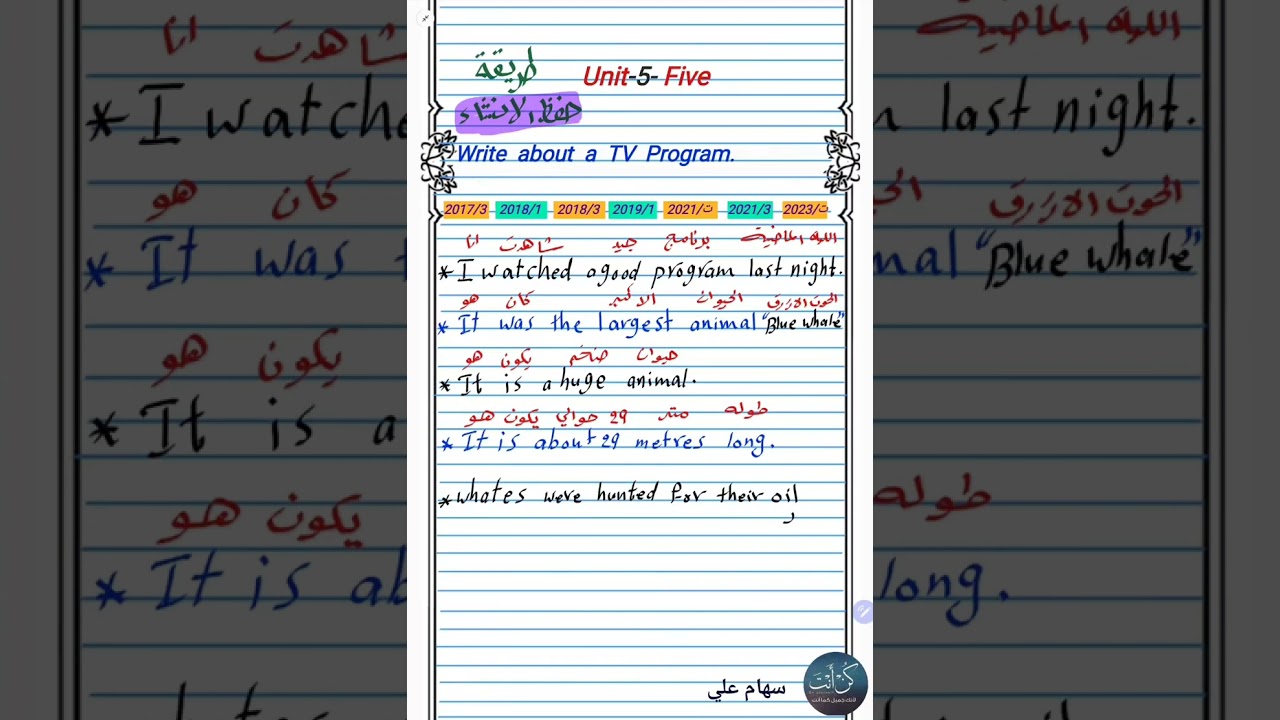 طريقة
Unit-5- Five
حفظ الانشاء
Write about a TV Program.
2017/3 2018/1 2018/3 2019/1 ت/2021 2021/3 ت/2023
انا شاهدت جيد برنامج الليلة الماضية
* I watched a good program last night.
هو كان الاكبر الحيوان الحوت الازرق
* It was the largest animal "Blue whale"
هو يكون ضخم حيوان
* It is a huge animal.
هو يكون حوالي 29 متر طوله
* It is about 29 metres long.
* whates were hunted for their oil
سهام علي
كن أنت
لأنك جميل كما أنت